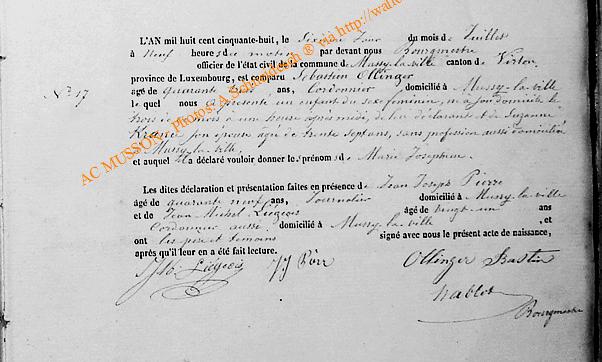 L'AN mil huit cent cinquante-huit, le sixième jour du mois de Juillet
à neuf heures du matin par devant nous Bourgmestre
officier de l'état civil de la commune de Mussy-la-ville canton de Virton,
N° 17
province de Luxembourg, est comparu Sébastien Ollinger
âgé de quarante ans, Cordonnier domicilié à Mussy-la-ville
le quel nous a présenté un enfant du sexe féminin, né à son domicile le
trois de ce mois à une heure après midi, de lui déclarant et de Suzanne
son épouse agé de trente sept ans, sans profession aussi domiciliée
Mussy-la-ville,
et auquel il a déclaré vouloir donner les prénoms de Marie Josephine.
Les dites déclaration et présentation faites en présence de Jean Joseph Pierre
âgé de quarante neuf ans, Journalier domicilié à Mussy-la-ville
et de Jean Michel Liégeois âgé de vingt un ans
Cordonnier aussi domicilié à Mussy-la-ville, et
ont les père et témoins signé avec nous le présent acte de naissance,
après qu'il leur en a été fait lecture.
Liégeois Ollinger Bastin
Bourgmestre
AC MUSSON. Photos: A. Schaudeodh ® via http://wa